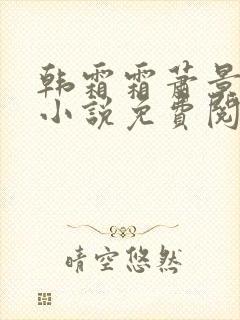 韩霜霜萧景
小说免费阅
晴空悠然